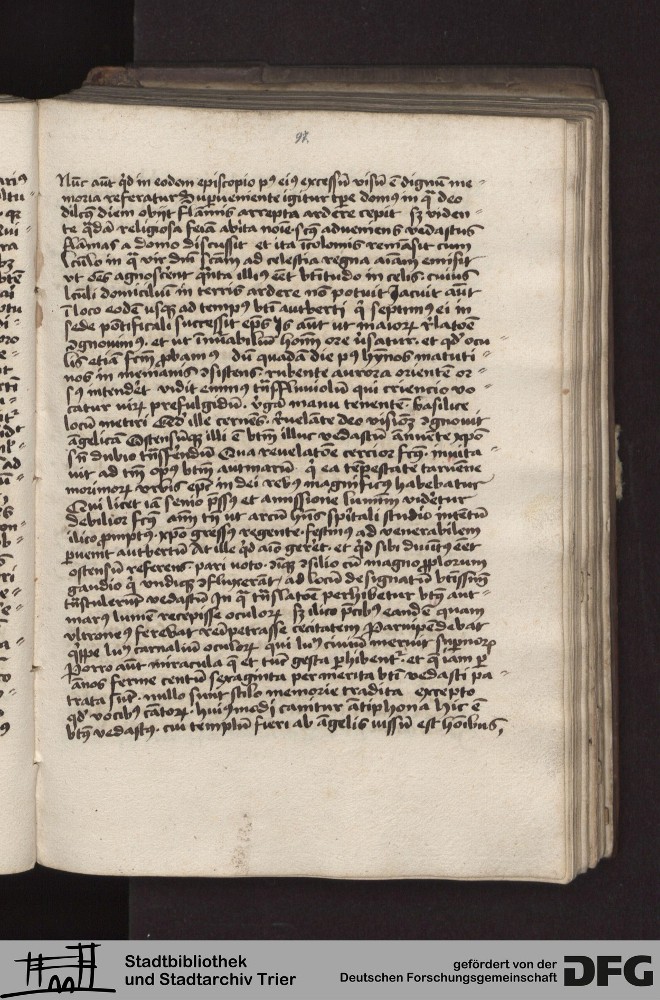 98
Nūc aūt qd in eodem episcopio pꝰ eiꝰ excessū visū ē dignū me
moria referatur Supueniente igitur tpe domꝰ in q̄ deo
dilcꝰ diem obijt flāmis arrepta ardere cepit sꝫ viden
te q̄dā religiosa feīa abita noīe scꝰ adueniens vedastus
flāmas a domo discussit et ita īcolomis remāsit cum
lc̄ulo in q̄ vir dnī sc̄am ad celestia regna aīam emisit
vt oēs agnoscēnt q̄nta illiꝰ eēt btītudo in celis cuius
lc̄uli domiciliū in terris ardere nō potuit Iacuit aūt
ī loco eodē usqꝫ ad tempꝰ btī autberti q̄ septimꝰ ei in
sede pōtificali successit ep̄s Is aūt ut maioꝝ rlatōe
ꝯgnouimꝰ et ut īnūabiliū hoīm ore vsatur et qd ocu
lis etiā probamꝰ dū quadā die pꝰ hȳnos matuti
nos in menianis ꝯsistens rubente aurora oriente or
sꝰ intenderet vidit eminꝰ tn̄sfluuiolū qui criencio vo
catur virū prefulgidū v̄gā manu tenente basilice
locū metiri Qd ille cernēs rvelāte deo visionē ꝯgnouit
āgelicā Ostensūqꝫ illi ē btm̄ illuc vedastū annēte xp̄o
sn̄ dubio tn̄sferendū Qua reuelatōe cercior inuita
uit ad tm̄ opꝰ btm̄ autmarū q̄ ea tēpestate taruene
morimoꝝ vrbis ep̄c in dei rebꝰ magnificꝰ habebatur
Qui licet iā senio pssꝰ et amissione luminū videretur
debilior aīm tn̄ ut arcū hn̄s spiritali studio intētū
ilico pmptꝰ xp̄o gressꝰ regente festinꝰ ad venerabilem
puenit autbertū At ille qd aīo gereret et qd sibi diuitꝰ eēt
ostensū referens pari voto ꝯsilio cū magno pploꝝum
gaudio q̄ vndiqꝫ ꝯfluxerāt ad locū designatū
tn̄stulerunt vedastū In q̄ tn̄slatōe perhibetur btꝰ aut
marꝰ lumē recepisse oculoꝝ sꝫ ilico pcibꝰ eandē quam
vltroneꝰ ferebat impetrasse cecitatem Paruipēdebat
q̄ppe lucē carnaliū oculoꝝ qui lucē ciuiū meruit supernoꝝ
Porro aūt miracula q̄ et tūc gesta phibent et q̄ iam p
ānos ferme centū sexaginta per merita btī vedasti pa
trata sūt nullo sunt stilo memorie tradita excepto
qd vocibꝰ cātoꝝ huiꝰmodi canitur ātiphona Hic ē
btꝰ vedastꝰ cui templū fieri ab āgelis iussū est hoībus
Stadtbibliothek
und Stadtarchiv Trier
gefördert von der
Deutschen Forschungsgemeinschaft
DFG